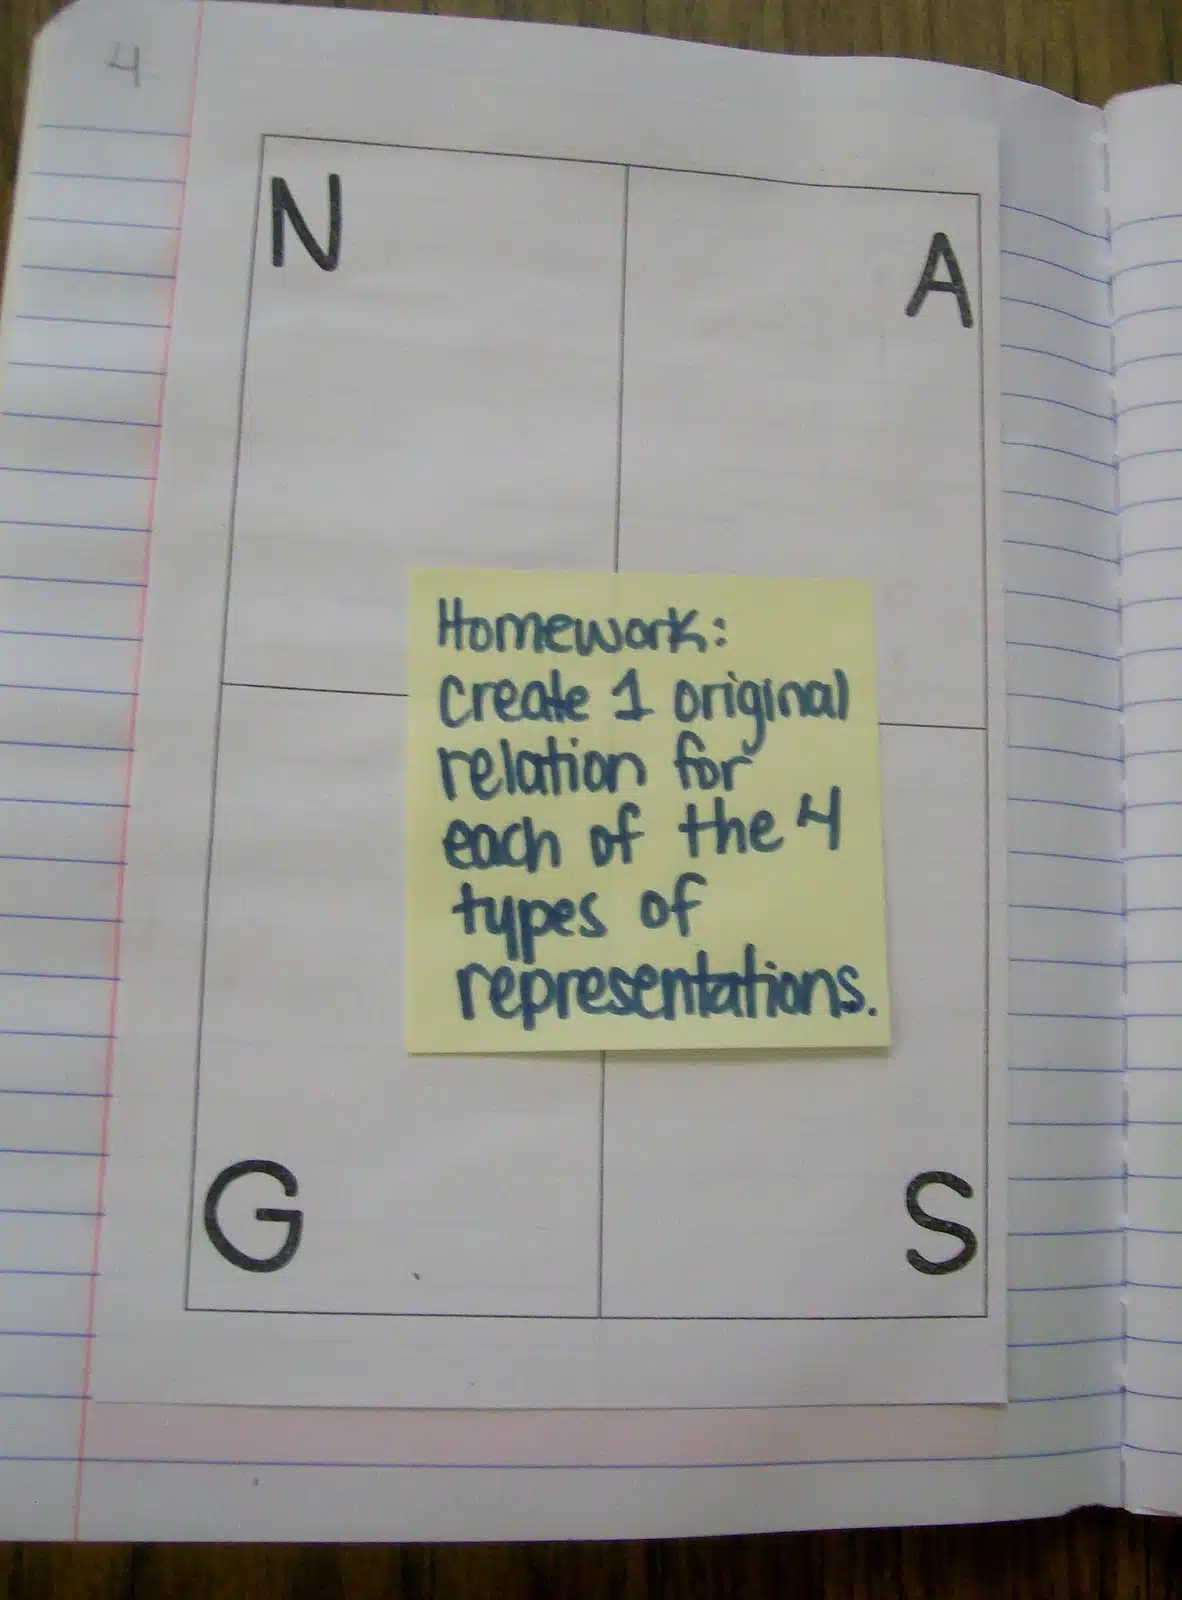 4
N
A
Homework:
create 1 original
relation for
each of the 4
types of
representations.
G
S